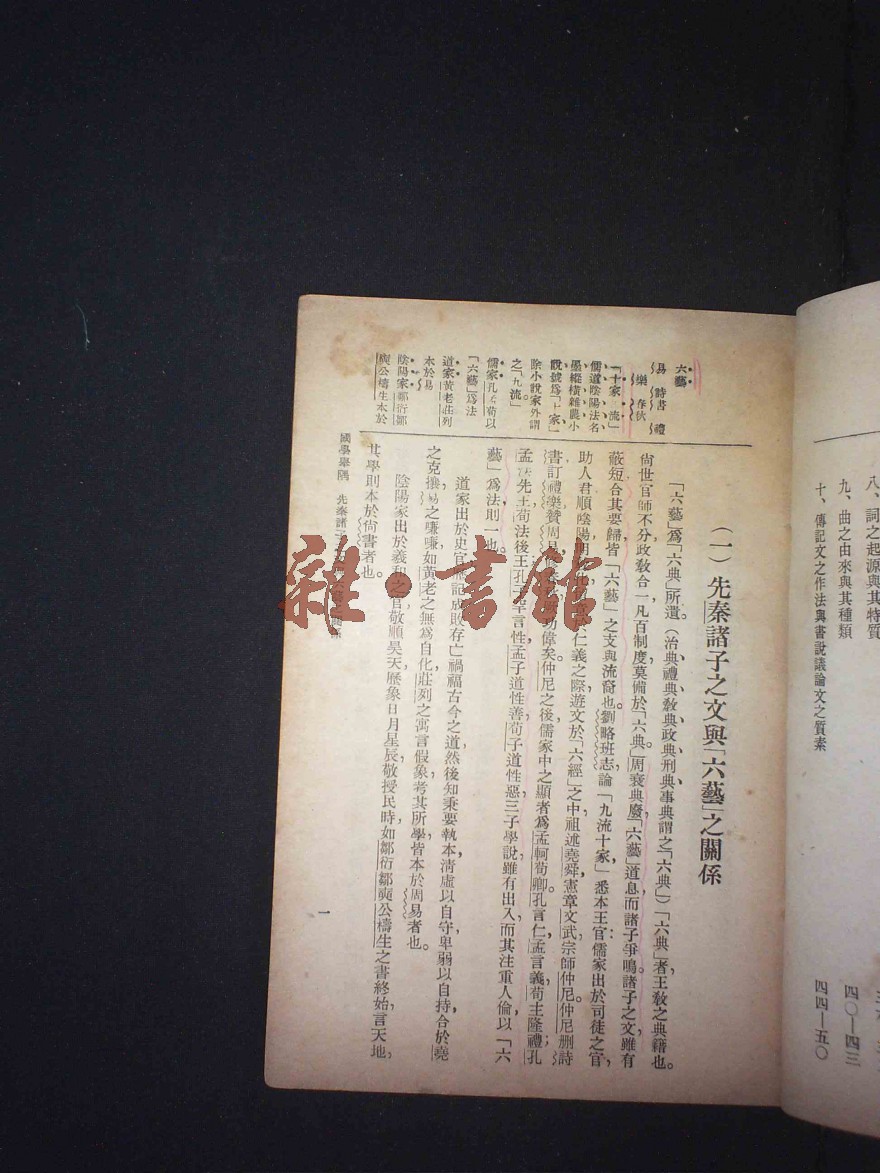 八、詞之起源與其特質
九、曲之由來與其種類
四〇—四三
十、傳記文之作法與書說議論文之質素
四四—五〇
六藝
易 詩書 禮
樂 春秋
「十家九流」
儒道陰陽法名
墨縱橫雜農小
說號爲「十家」
除小說家外謂
之「九流」
儒家孔孟荀以
「六藝」爲法
道家黃老莊列
本於易
陰陽家鄒衍鄒
奭公檮生本於
(一) 先秦諸子之文與「六藝」之關係
「六藝」爲「六典」所遺。(治典禮典敎典政典刑典事典謂之「六典」)「六典」者王敎之典籍也。
尙世官師不分政敎合一凡百制度莫備於「六典」。周衰典廢「六藝」道息而諸子爭鳴諸子之文雖有
蔽短合其要歸皆「六藝」之支與流裔也。劉略班志論「九流十家」悉本王官儒家出於司徒之官
助人君順陰陽明敎化 於仁義之際遊文於「六經」之中祖述堯舜憲章文武宗師仲尼。仲尼删詩
書訂禮樂贊周易 功偉矣仲尼之後儒家中之顯者爲孟軻荀卿。孔言仁孟言義荀主隆禮；孔
孟法先王荀法後王孔子罕言性孟子道性善荀子道性惡三子學說雖有出入而其注重人倫以「六
藝」爲法則一也。
道家出於史官 記成敗存亡禍福古今之道然後知秉要執本淸虛以自守卑弱以自持合於堯
之克攘易之嗛嗛如黃老之無爲自化莊列之寓言假象考其所學皆本於周易者也。
陰陽家出於羲和之官敬順昊天歷象日月星辰敬授民時如鄒衍鄒奭公檮生之書終始言天地，
其學則本於尙書者也。
國學舉隅 先秦諸子
一
雜·書館